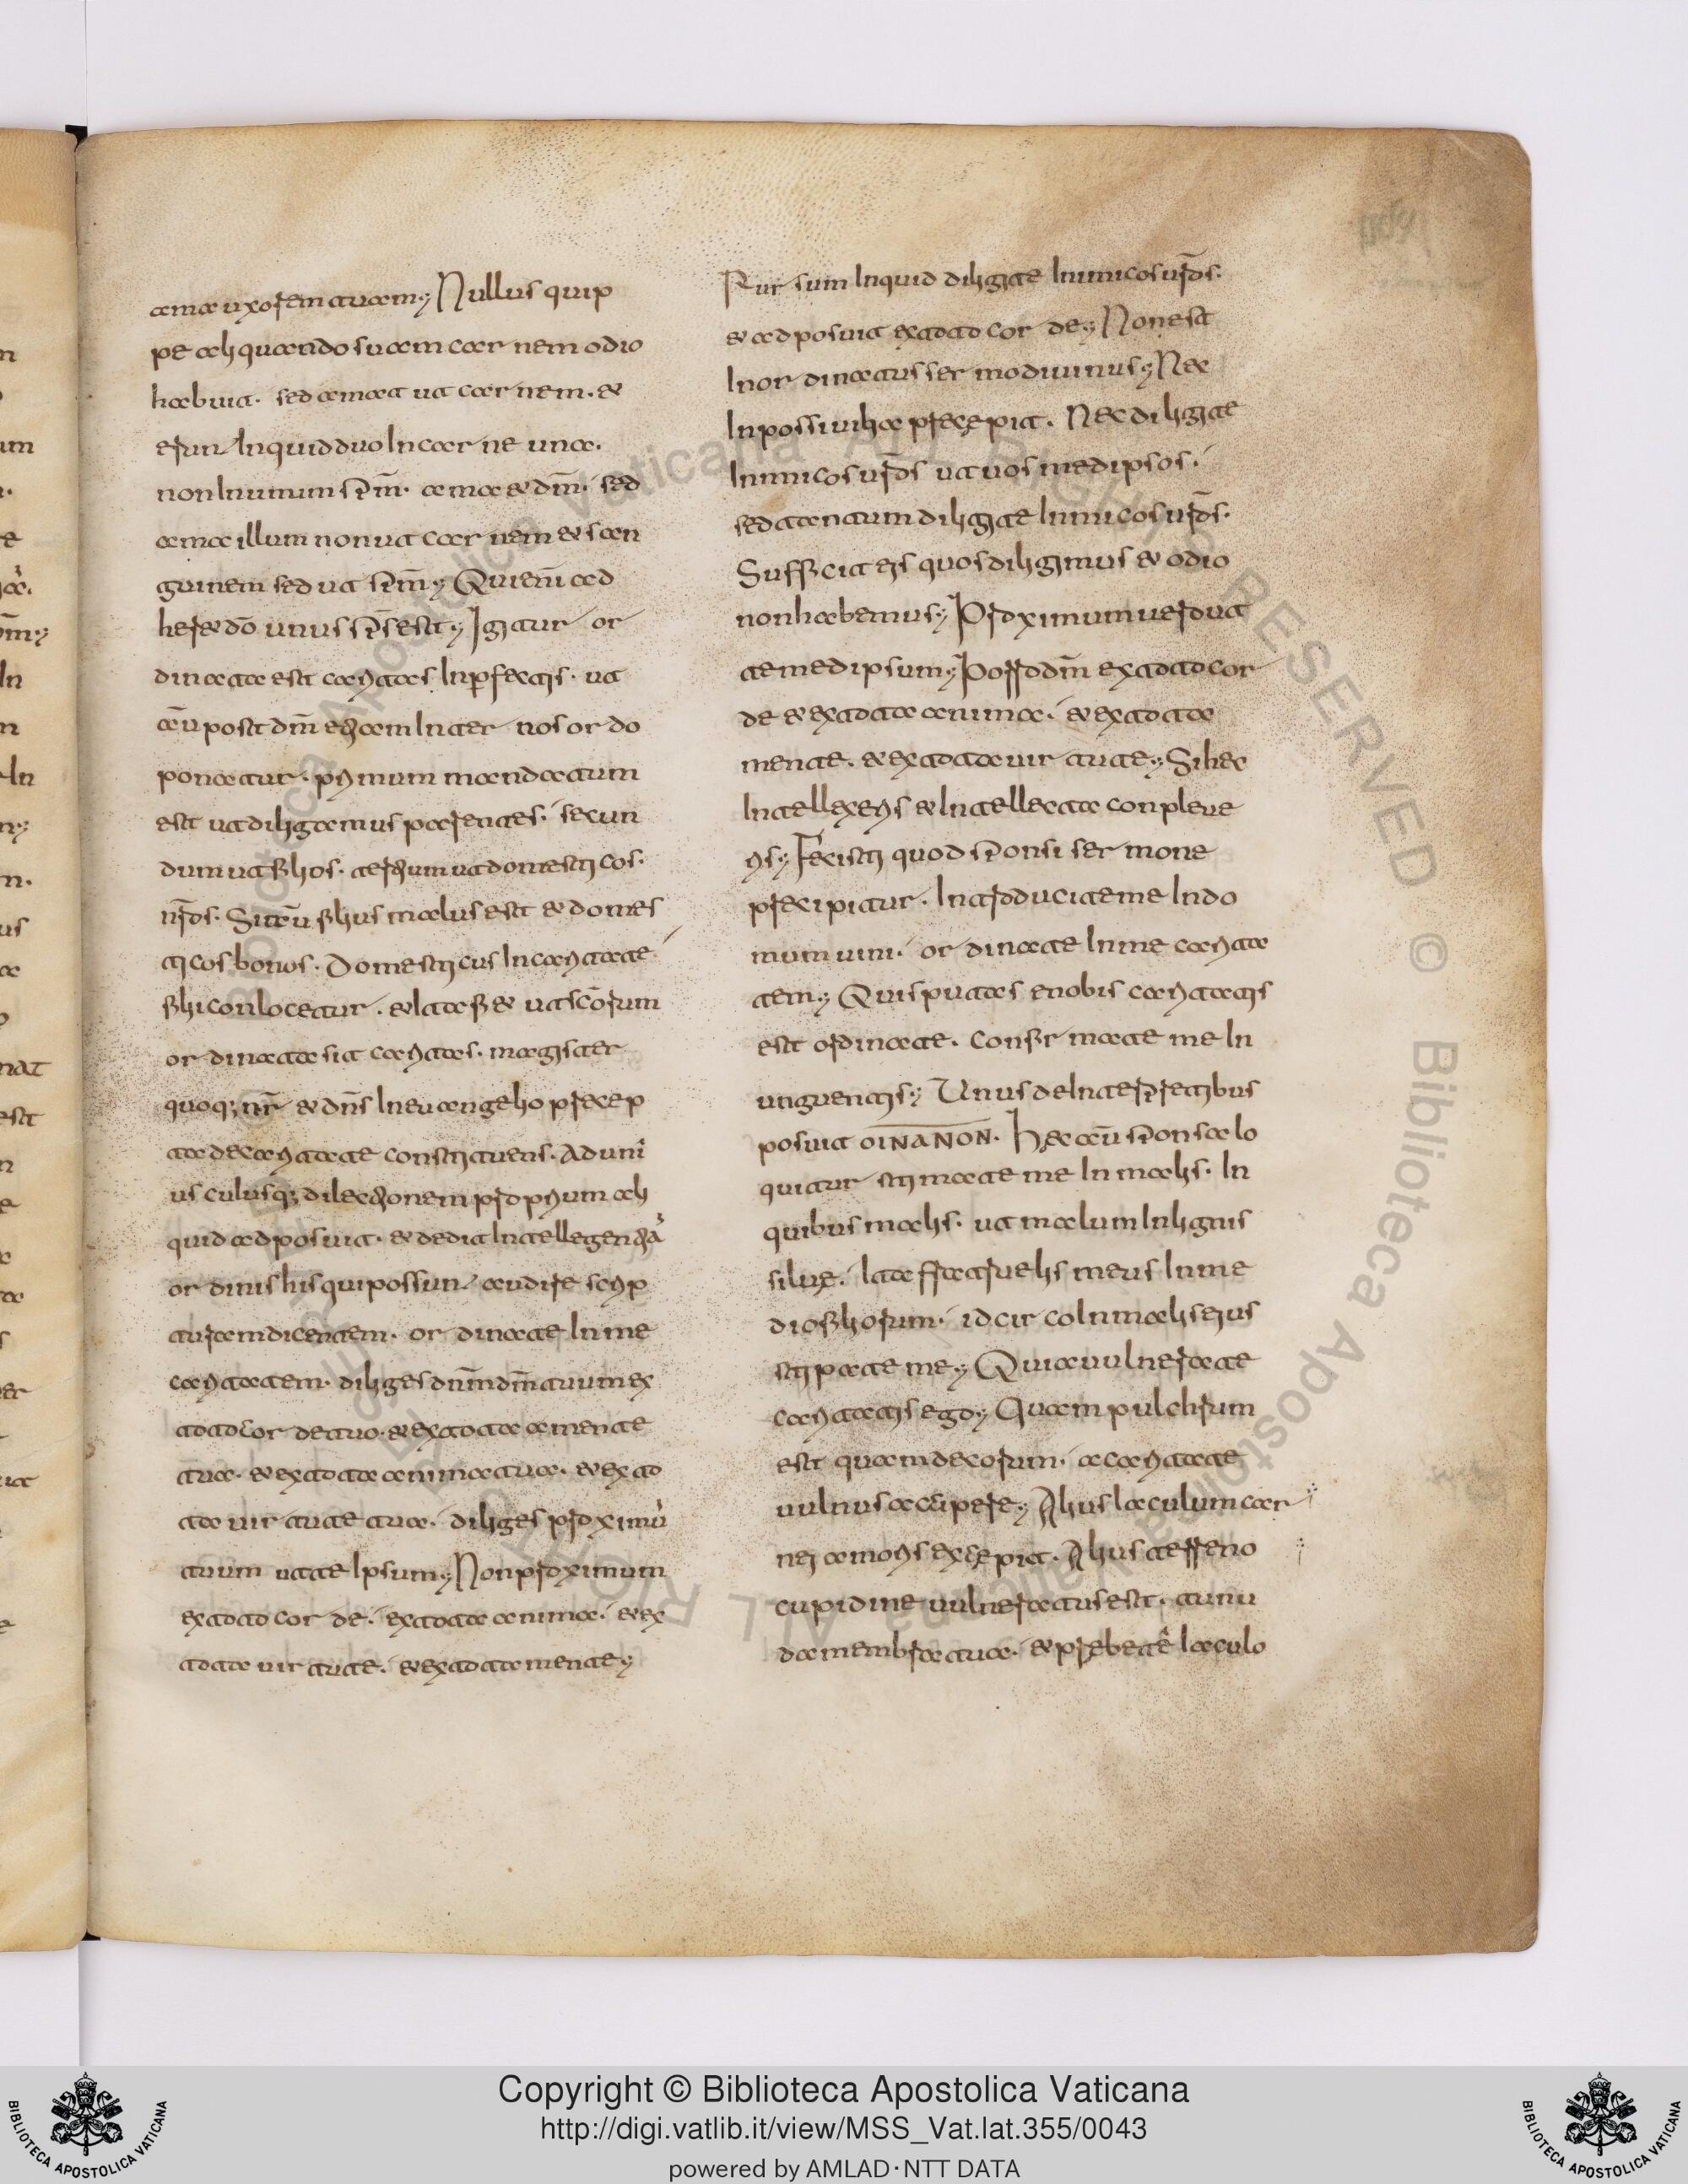 ama uxorem tuam; Nullus quip
pe aliquando suam carnem odio
habuit. sed amat ut carnem. et
erunt Inquid duo In carne una.
non Inunum spm̄. ama et dm̄. sed
ama illum non ut carnem et san
guinem sed ut spm̄; Qui enī ad
heret dō unus sps̄ est; Igitur or
dinata est caritas Inperfectis. ut
aū post dm̄ etiam Inter nos ordo
ponatur. primum mandatum
est ut diligamus parentes. secun
dum ut filios. tertium ut domesticos
nrōs. Si aū filius malus est et domes
ticos bonos. Domesticus In caritate
filii conlocetur. et Ita fiet ut scōrum
ordinata sit caritas. magister
quoq; nr̄ et dns̄ In euangelio precep
ta de caritate constituens. Aduni
us cuiusq; dilectionem proprium ali
quid adposuit. et dedit Intellegentiā
ordinis his qui possunt audire scrip
turam dicentem. ordinate In me
caritatem. diliges dnm̄ dm̄ tuum ex
toto cor de tuo. et ex tota a mente
tua. et ex tota anima tua. et ex to
ta uirtute tua. diliges proximū
tuum ut te Ipsum; Non proximum
ex toto cor de. ex tota anima. et ex
tota uirtute. et ex tota mente;
Rursum Inquid diligite Inimicos urōs.
et adposuit ex toto cor de; Non est
Inordinatus sermo diuinus; Nec
Inpossiuilia precepit. Nec diligite
Inimicos urōs ut uosmedipsos.
sed tantum diligite Inimicos urōs.
Sufficit eis quos diligimus et odio
non habemus; Proximum uero ut
temedipsum; Porro dm̄ ex toto cor
de et ex tota anima. et ex tota
mente. et ex tota uirtute; Si hec
Intellexeris et Intellecta conpleue
ris; Fecisti quod sponsi sermone
precipitur. Introducite me In do
mum uini. ordinate In me carita
tem; Quis putas e nobis caritatis
est ordinate. confirmate me In
unguentis; Unus de Interpretibus
posuit OINANON. Hec aū sponsa lo
quitur stipate me In malis. In
quibus malis. ut malum In lignis
silue. Ita fratruelis meus In me
dio filiorum. idcirco In malis eius
stipate me; Quia uulnerate
caritatis ego; Quam pulchrum
est quam decorum. a caritate
uulnus accipere; Alius Iaculum car
nei amoris excepit. Alius terreno
cupidine uulneratus est. tu nu
da membra tua. et prebe te Iaculo
Copyright © Biblioteca Apostolica Vaticana
http://digi.vatlib.it/view/MSS_Vat.lat.355/0043
powered by AMLAD·NTT DATA